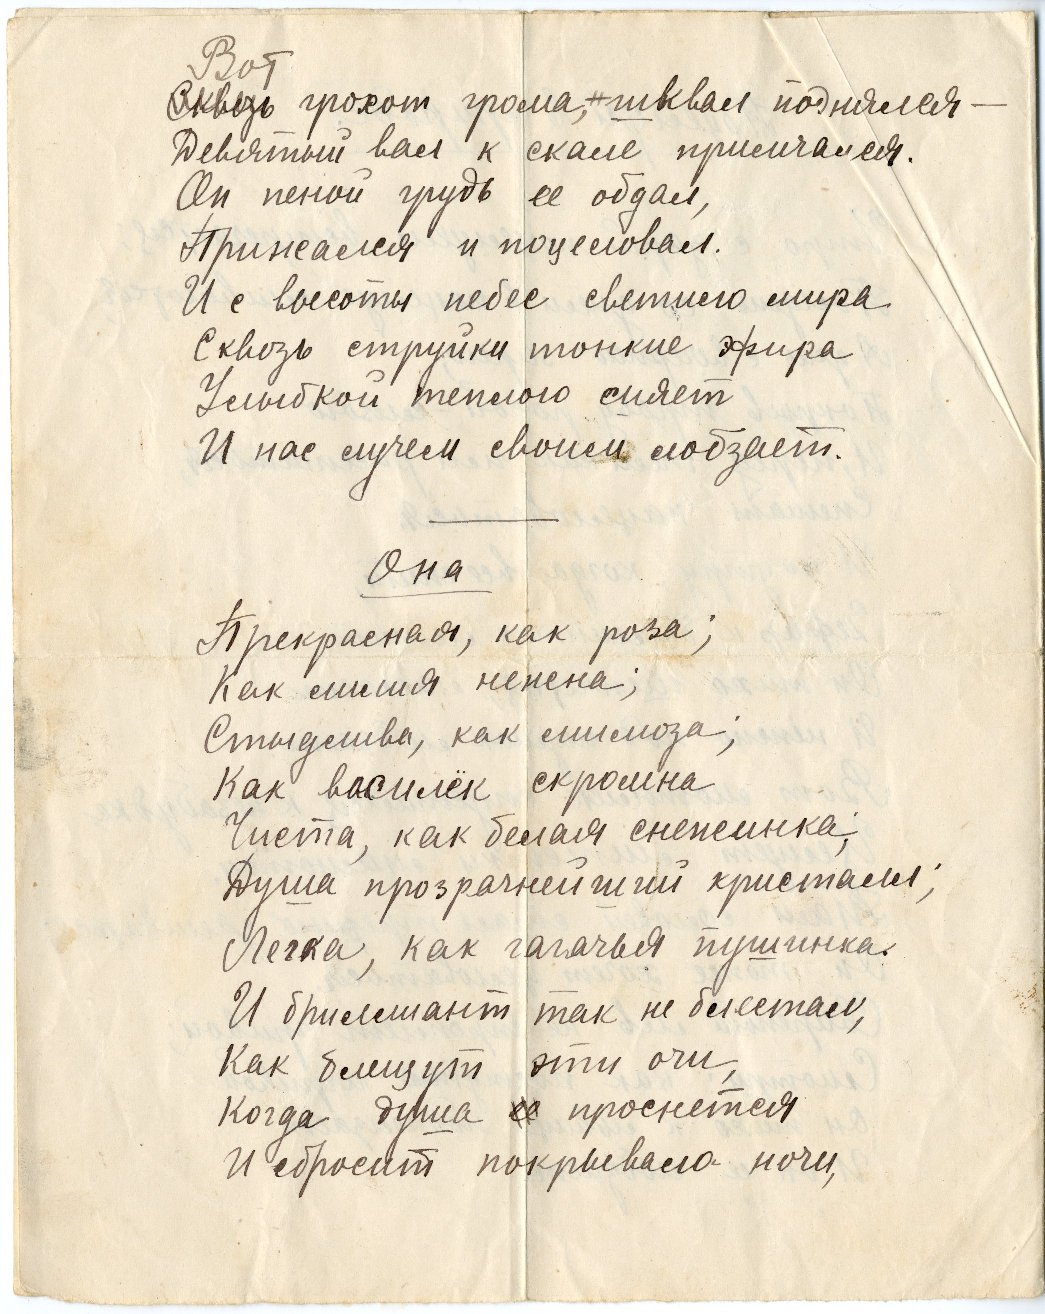 Вот
Сквозь грохот грома, шквал поднялся —
Девятый вал к скале примчался.
Он пеной грудь ее обдал,
Прижался и поцеловал.
И с высоты небес светило мира
Сквозь струйки тонкие эфира
Улыбкой теплою сияет
И нас лучем своим лобзает.
Она
Прекрасная, как роза;
Как лилия нежна;
Стыдлива, как мимоза;
Как василёк скромна
Чиста, как белая снежинка;
Душа прозрачнейший кристалл;
Легка, как гагачья пушинка.
И бриллиант так не блистал,
Как блещут эти очи,
Когда душа ее проснется
И сбросит покрывало ночи,